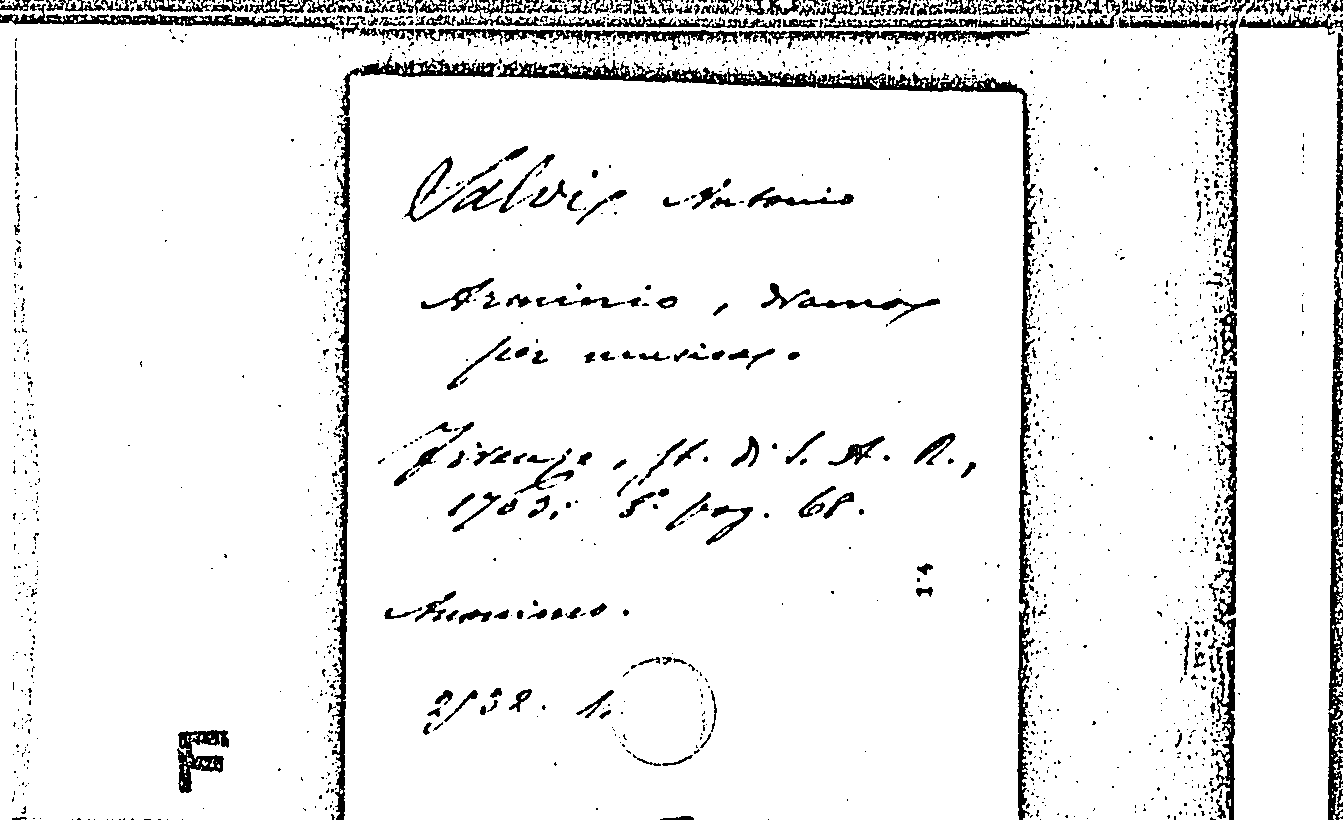 Salvi Antonio
Arminio, drama
per musica.
Firenze, st. di S. A. R.,
1703. 8° pag. 68.
14
Anonimo.
2532. 1.
F